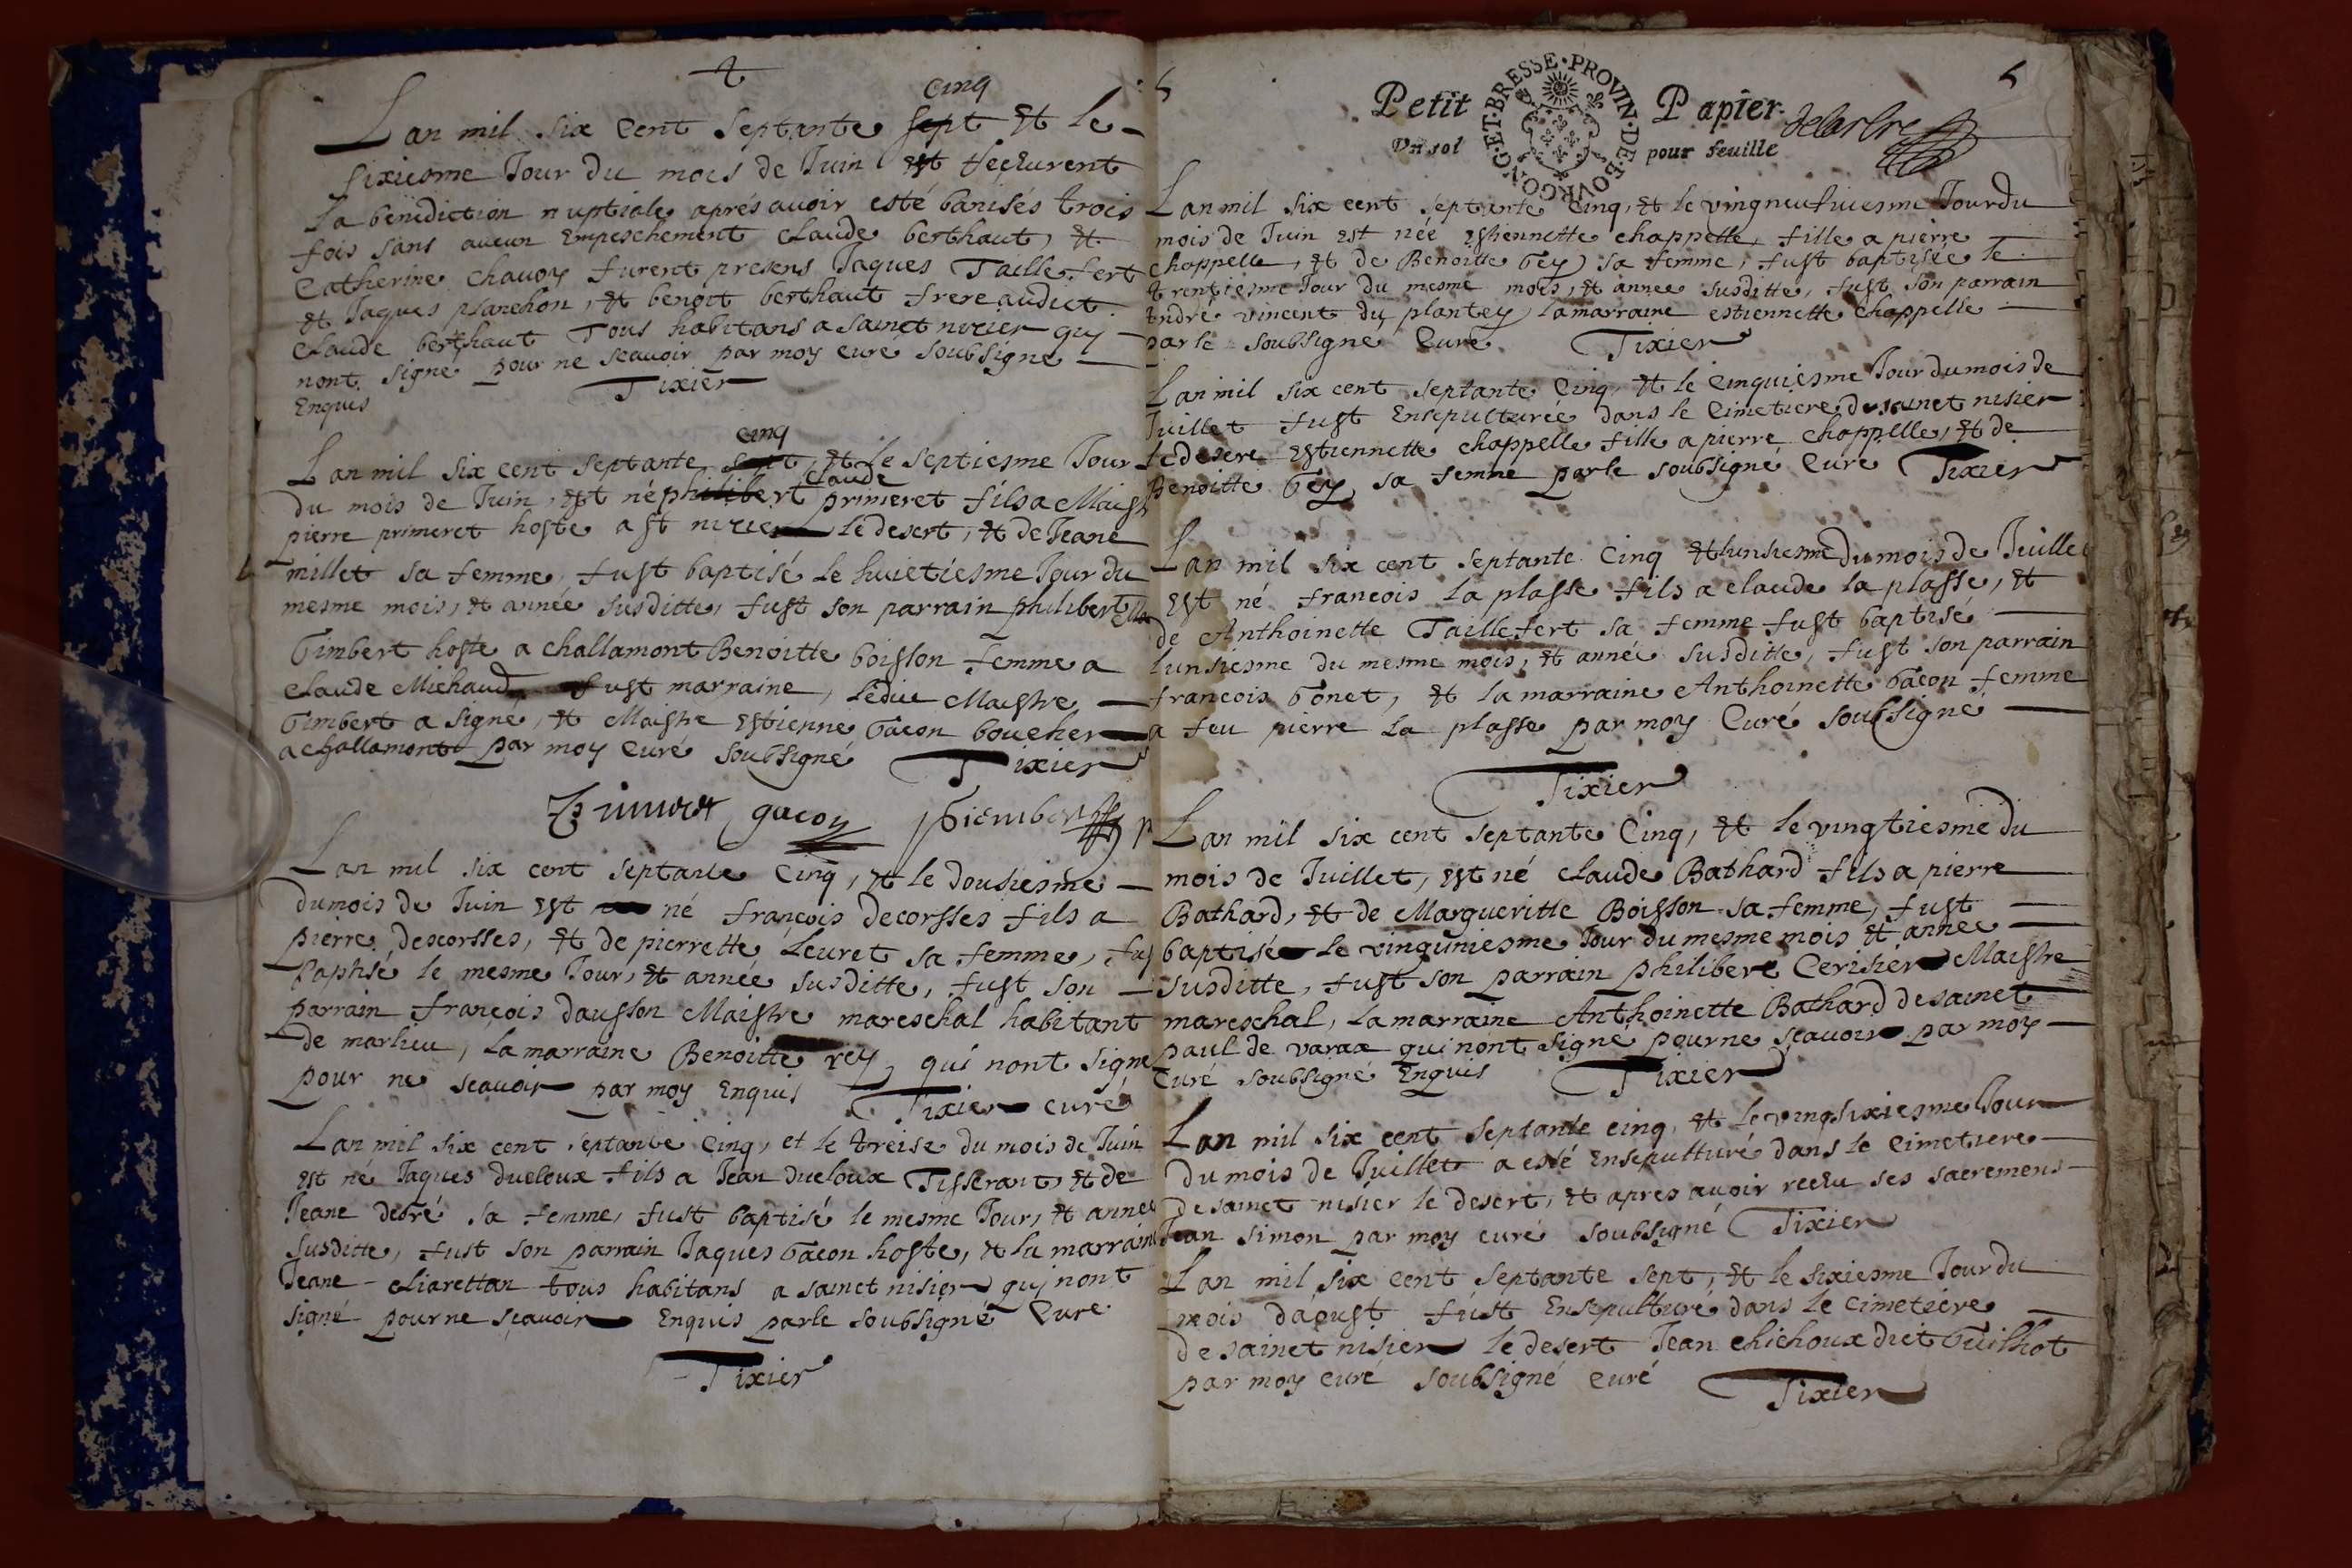 cinq
Lan mil six cent septante sept Et le
sixiesme Jour du mois de Juin est receurent
La benediction nuptiale aprés avoir esté banisés trois
fois sans aucun Empeschement Claude berthaut, Et
Catherine chavoy furent presens Jaques Taillefert
et Jaques planchon, et benoit berthaut frere audict
Claude berthaut Tous habitans a sainct nizier quj
nont signé pour ne scavoir par moy curé soubsigné
Enquis Tixier
cinq
Lan mil six cent septante sept, Et le septiesme Jour
claude
du mois de Juin, est né philibert primeret fils a Maistre
pierre primeret hoste a st nizier le desert, et de Jeane
millet sa femme, fust baptisé le huictiesme Jour du
mesme mois, et année susditte, fust son parrain philibert
Gimbert hoste a challamont Benoitte boisson femme a
Claude Michaud fust marraine, ledic Maistre
Gimbert a signé, et Maistre Estienne Gacon boucher
a challamont par moy Curé soubsigné Tixier
gacon
Lan mil six cent septante Cinq, et le dousiesme
du mois de Juin est né françois decorsses fils a
pierre descorsses, et de pierrette Leuret sa femme, fust
baptisé le mesme Jour, et année susditte, fust son
parrain françois dausson Maistre mareschal habitant
de marlieu, la marraine Benoitte rey, qui nont signé
pour ne scavoir par moy Enquis Tixier curé
Lan mil six cent septante Cinq, et le treise du mois de Juin
est né Jaques ducloux fils a Jean ducloux Tisserant, et de
Jeane debré sa femme, fust baptisé le mesme Jour, et année
susditte, fust son parrain Jaques Gacon hoste, et la marraine
Jeane Cliarettan tous habitans a sainct nisier quj nont
signé pour ne scavoir Enquis par le soubsigné Curé
Tixier
5
Petit Papier
BOVRGONG·ET·BRESSE·PROVIN·DE
Vn sol pour feuille
Lan mil six cent septante Cinq, et le vingneufviesme Jour du
mois de Juin est née Estiennette chappelle, fille a pierre
chappelle, et de Benoitte Gey sa femme, fust baptisée le
trentiesme Jour du mesme mois, et année susditte, fust son parrain
Andre vincent du plantey la marraine estiennette chappelle
par le soubsigné Curé Tixier
Lan mil six cent septante Cinq, et le Cinquiesme Jour du mois de
Juillet fust Ensepulturée dans le Cimetiere de sainct nisier
le desere Estiennette chappelle fille a pierre chappelle, et de
Benoitte Gey sa femme par le soubsigné Curé Tixier
Lan mil six cent septante Cinq et lunsiesme du mois de Juillet
Est né francois la plasse fils a claude la plasse, et
de Anthoinette Taillefert sa femme fust baptisé
lunsiesme du mesme mois, et année susditte, fust son parrain
francois Gonet, et la marraine Anthoinette Gacon femme
a feu pierre la plasse par moy Curé soubsigné
Tixier
Lan mil six cent septante Cinq, et le vingtiesme du
mois de Juillet, est né Claude Bathard fils a pierre
Bathard, et de Margueritte Boisson sa femme, fust
baptisé le vinguniesme Jour du mesme mois et année
susditte, fust son parrain philibert Cerisier Maistre
mareschal, la marraine Anthoinette Bathard de sainct
paul de varax qui nont signé pour ne scavoir par moy
Curé soubsigné Enquis Tixier
Lan mil six cent septante cinq, et le vingsixiesme Jour
du mois de Juillet a esté Ensepulturé dans le Cimetiere
de sainct nisier le desert, et apres avoir receu ses sacremens
Jean simon par moy curé soubsigné Tixier
Lan mil six cent septante sept, et le sixiesme Jour du
mois daoust fust Ensepulturé dans le cimetiére
de sainct nisier le desert Jean chichoux dict Guilhot
par moy curé soubsigné curé Tixier